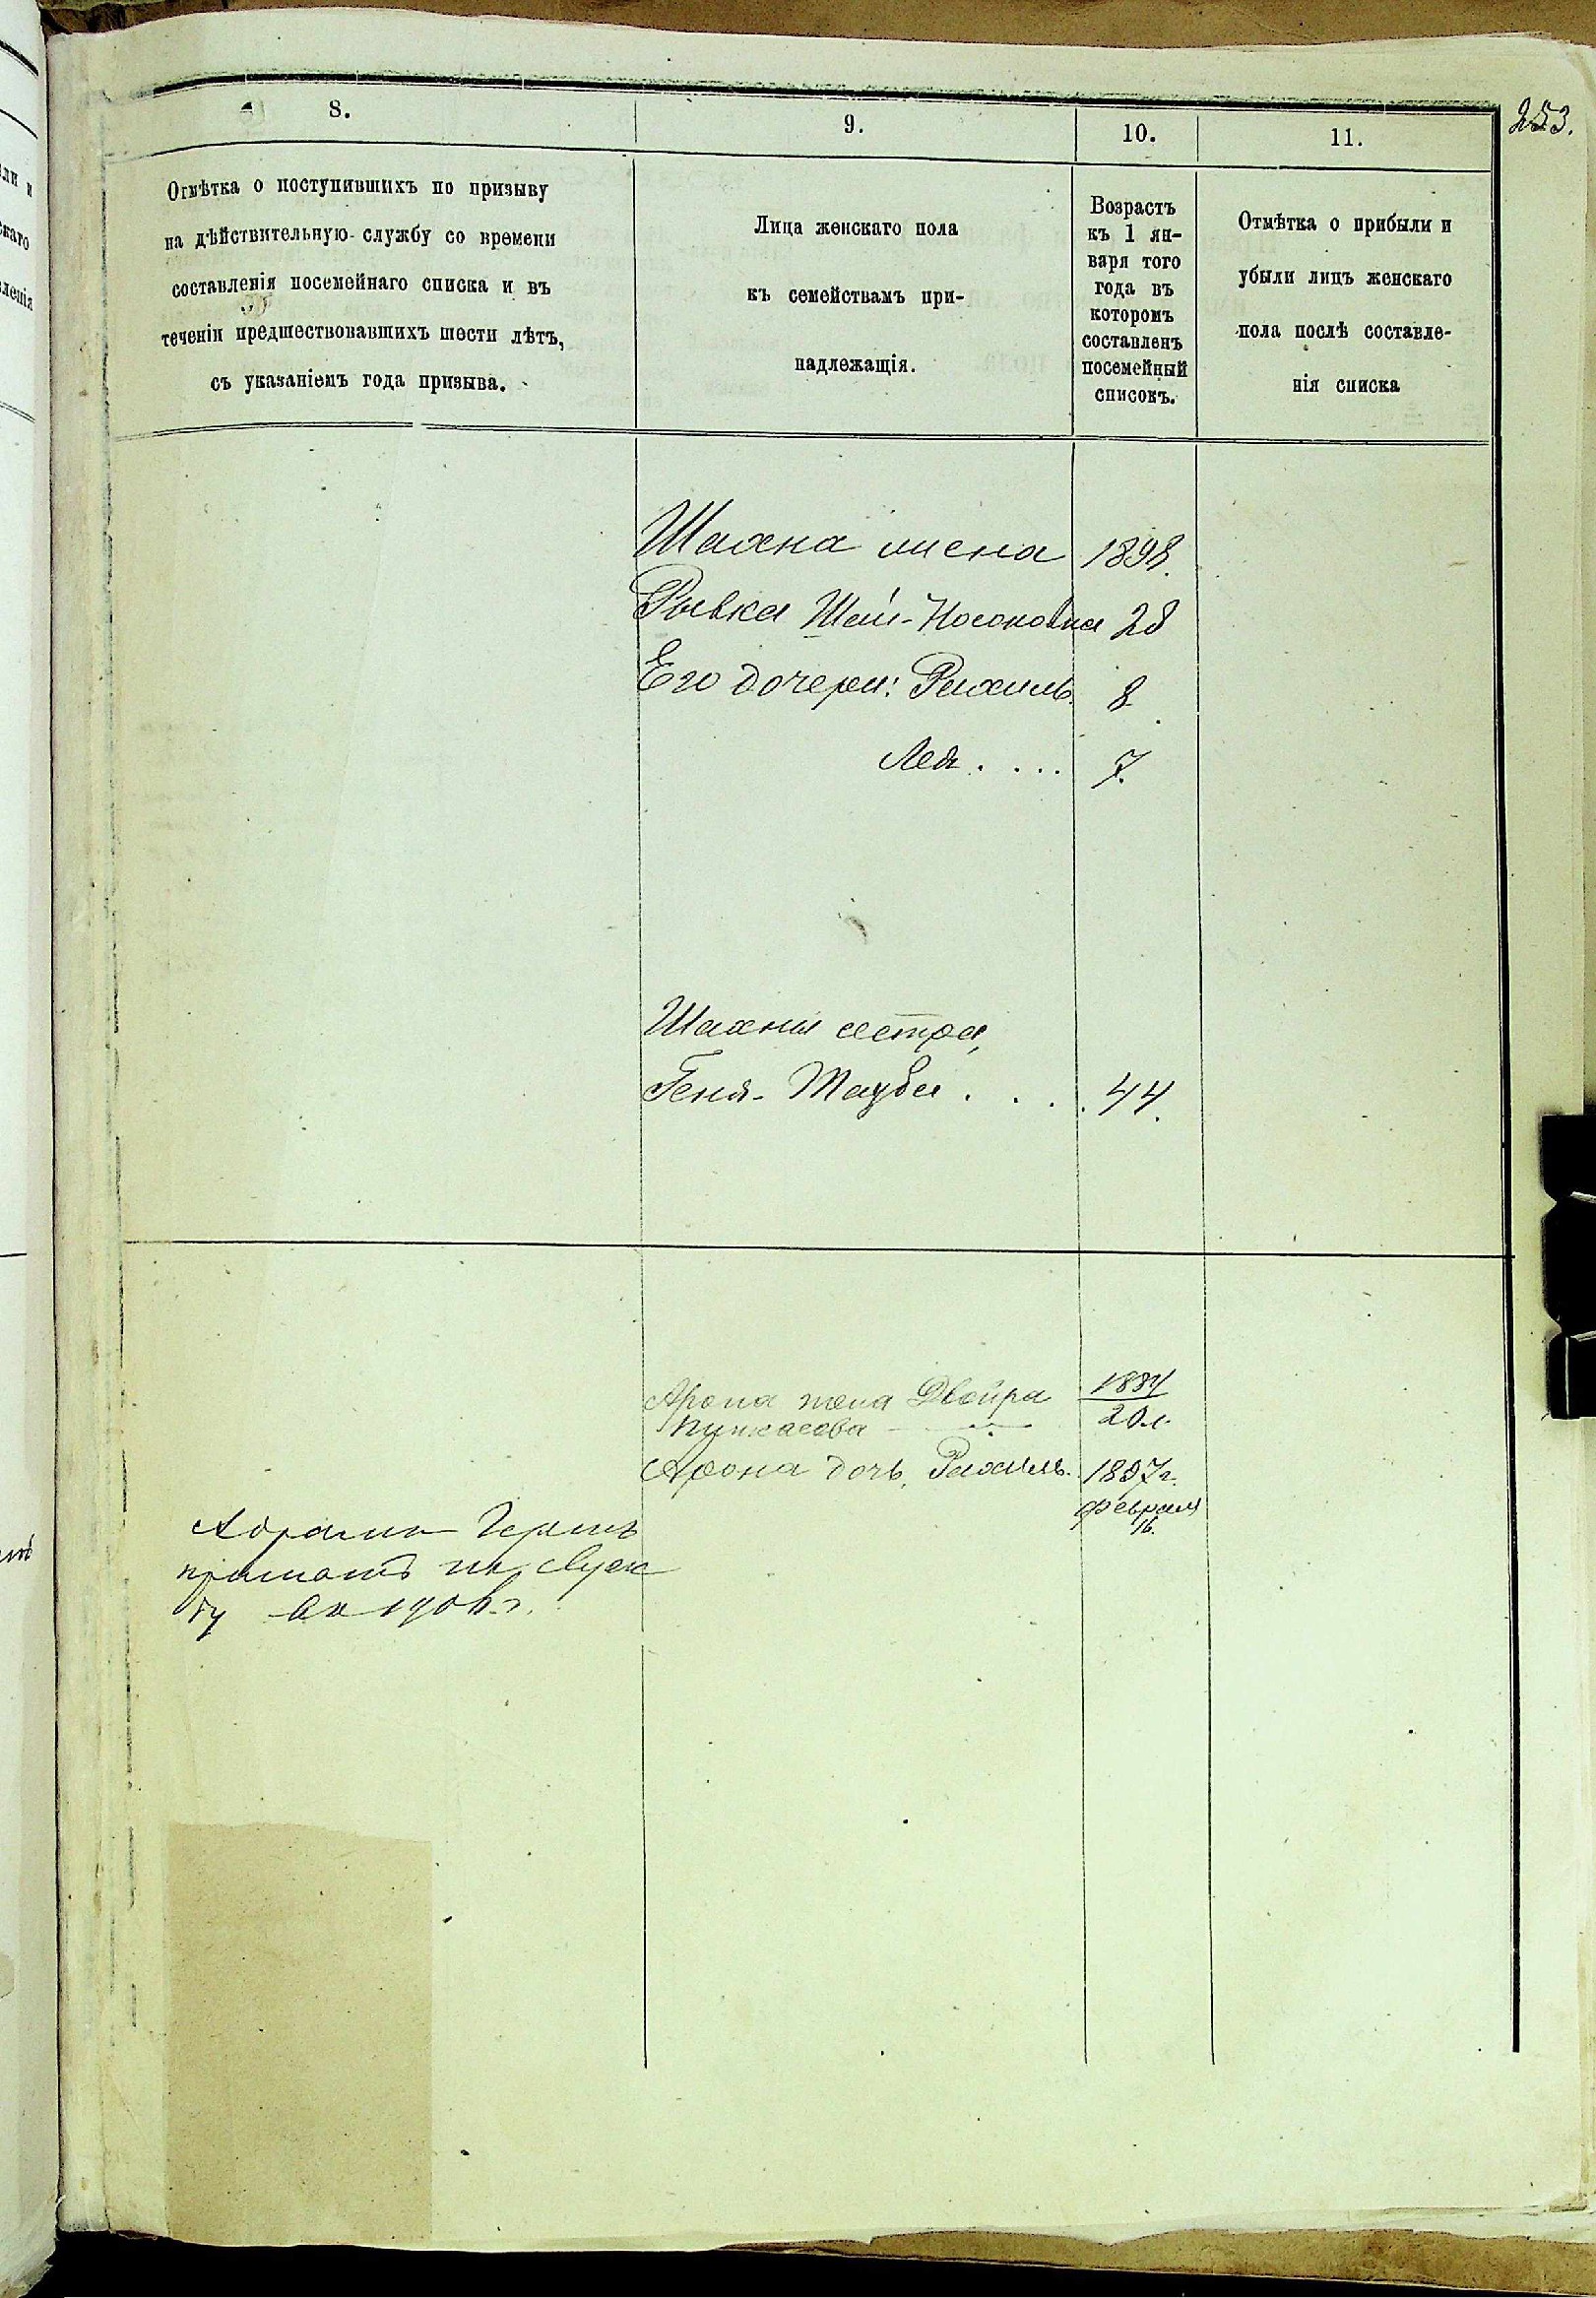 253.
8.
9.
10.
11.
Отмѣтка о поступившихъ по призыву
на дѣйствительную службу со времени
составленія посемейнаго списка и въ
теченіи предшествовавшихъ шести лѣтъ,
съ указаніемъ года призыва.
Лица женскаго пола
къ семействамъ при-
надлежащія.
Возрастъ
къ 1 ян-
варя того
года въ
которомъ
составленъ
посемейный
списокъ.
Отмѣтка о прибыли и
убыли лицъ женскаго
пола послѣ составле-
нія списка
Шахна жена 1898.
Рывка Шай-Носоновна 28
Его дочери: Рахиль. 8.
Лея . . . . 7.
Шахны сестра,
Геня-Тауба . . . . 44.
Арона жена Двойра 1884
Пинхасова 20 л.
Арона дочь, Рахиль. 1897 г.
февраля
16.
Абрамъ Гершъ
принятъ на служ
бу въ 1906 г.